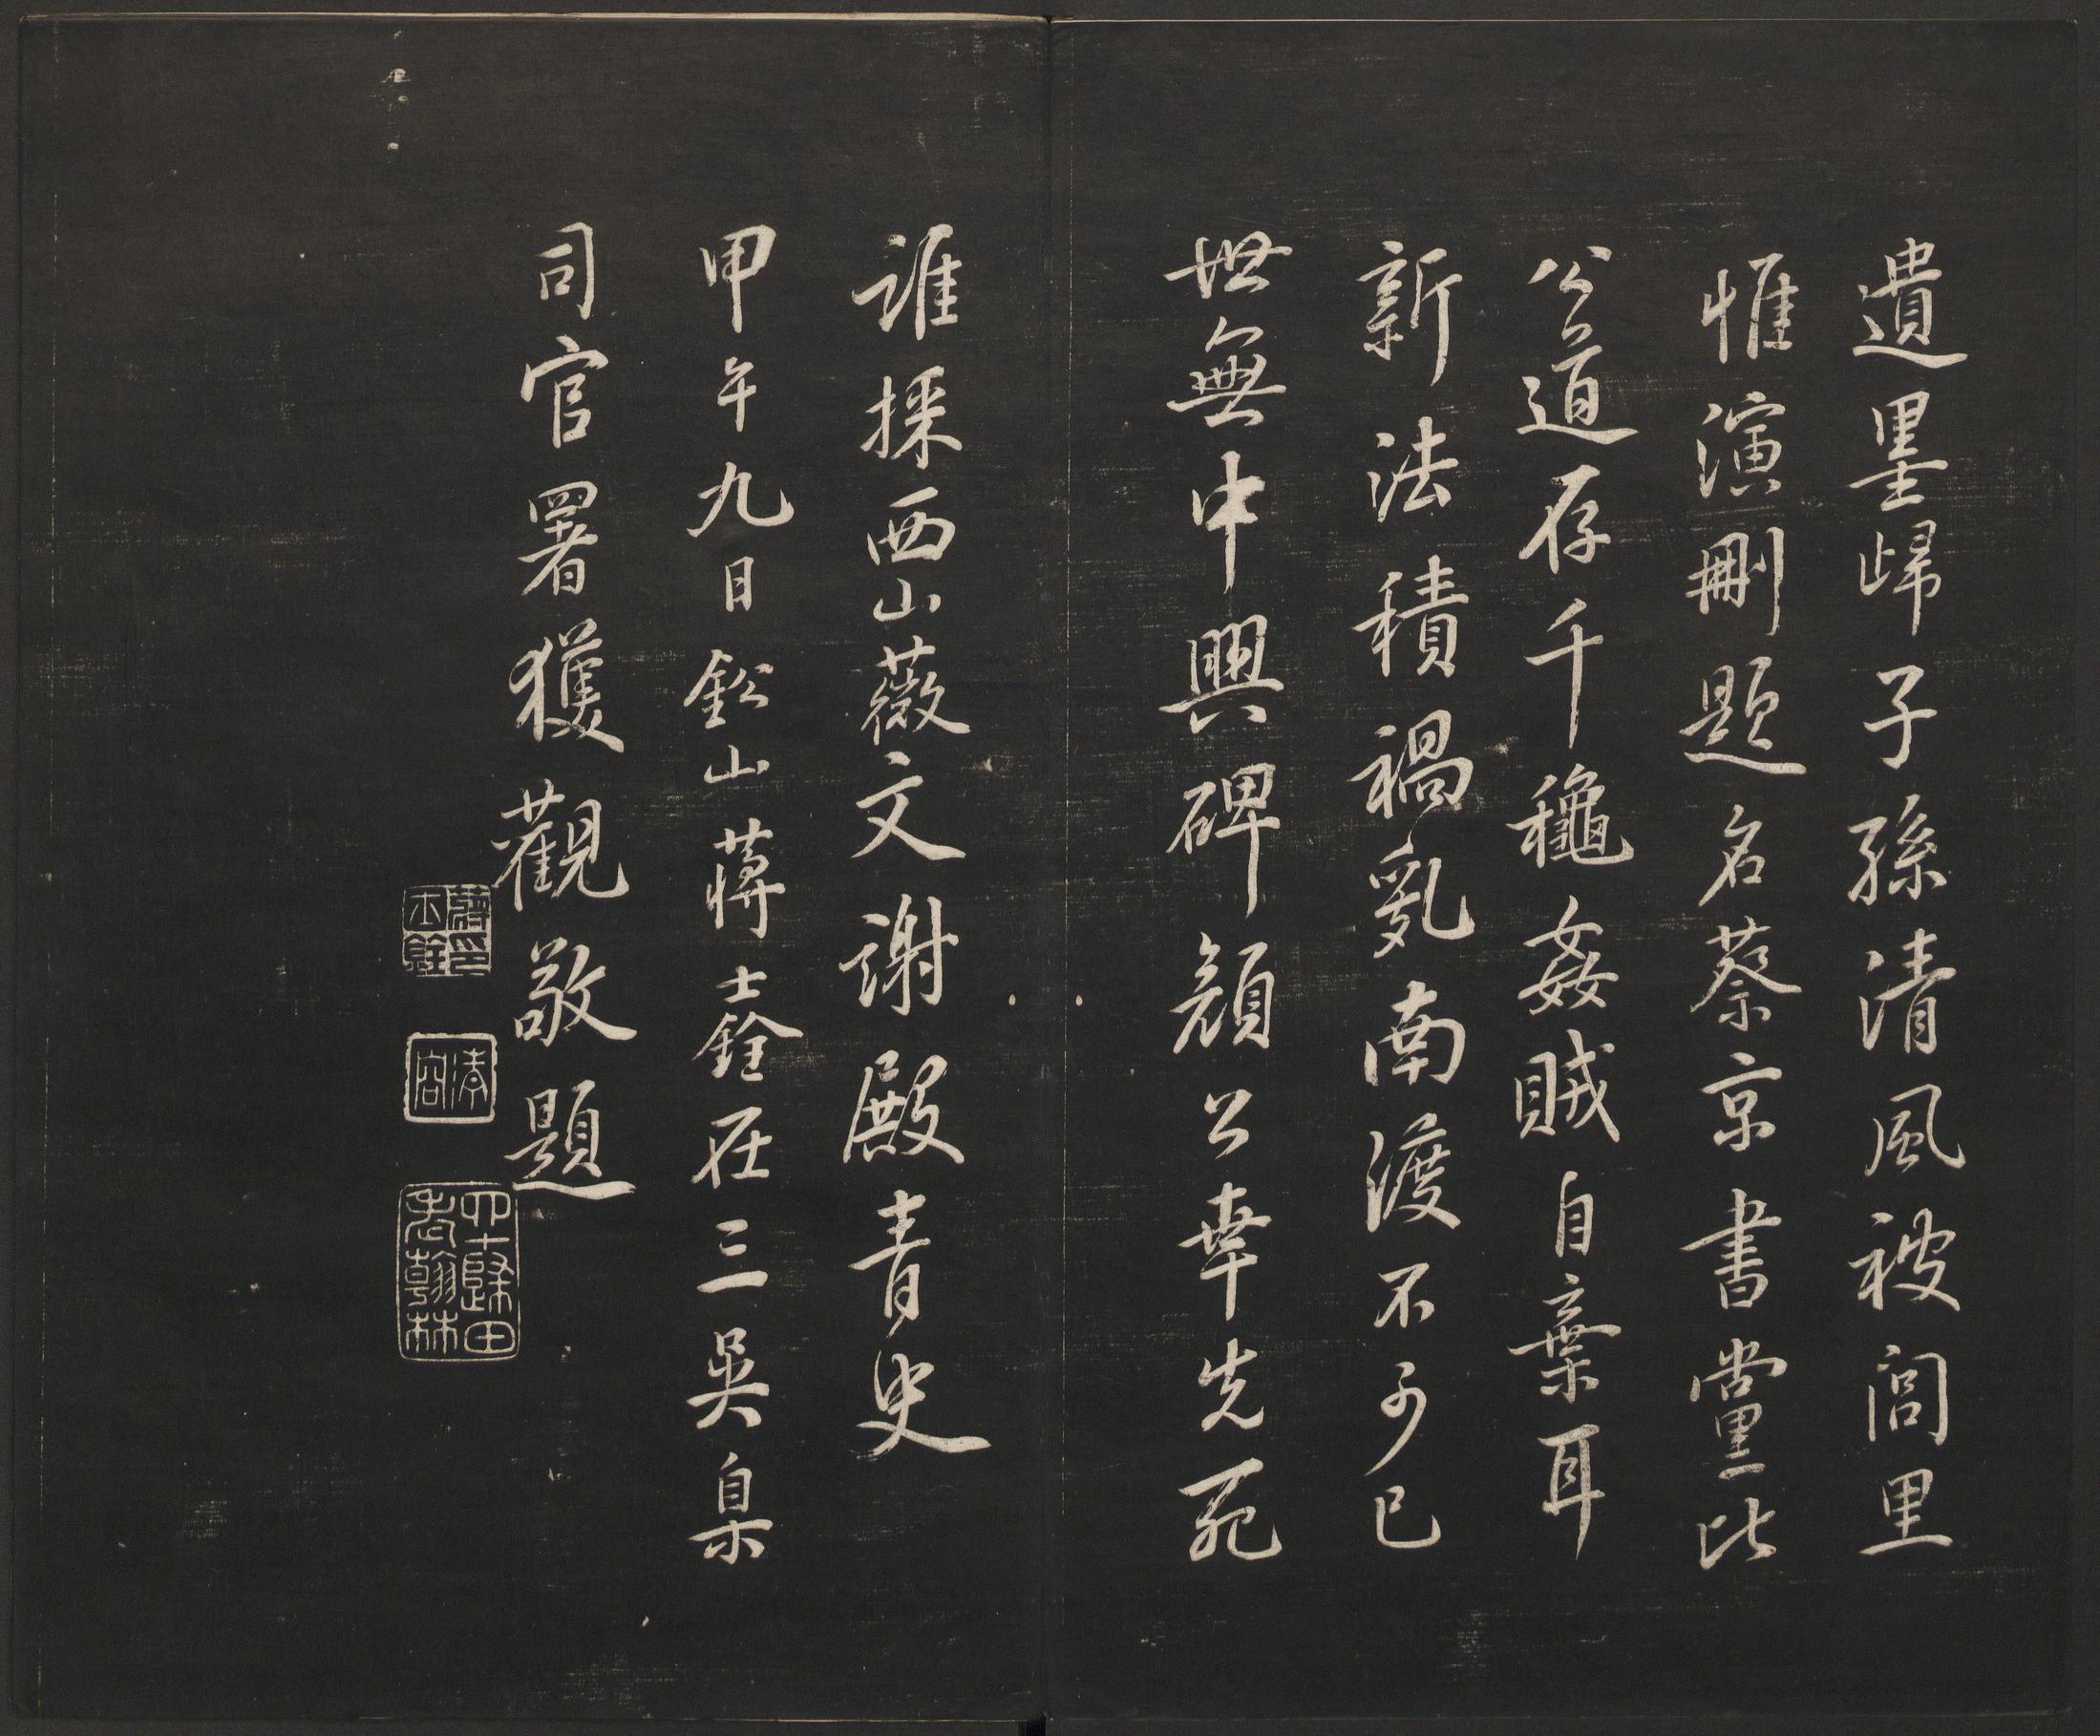 遺墨歸子孫清風被閭里
惟演刪題名蔡京書黨比
公道存千龝姦賊自棄耳
新法積禍亂南渡不可已
世無中興碑顔公幸先死
誰採西山薇文謝殿青史
甲午九日鉛山蔣士銓在三吳臬
司官署獲觀敬題
蔣士銓印
四十歸田
老翰林